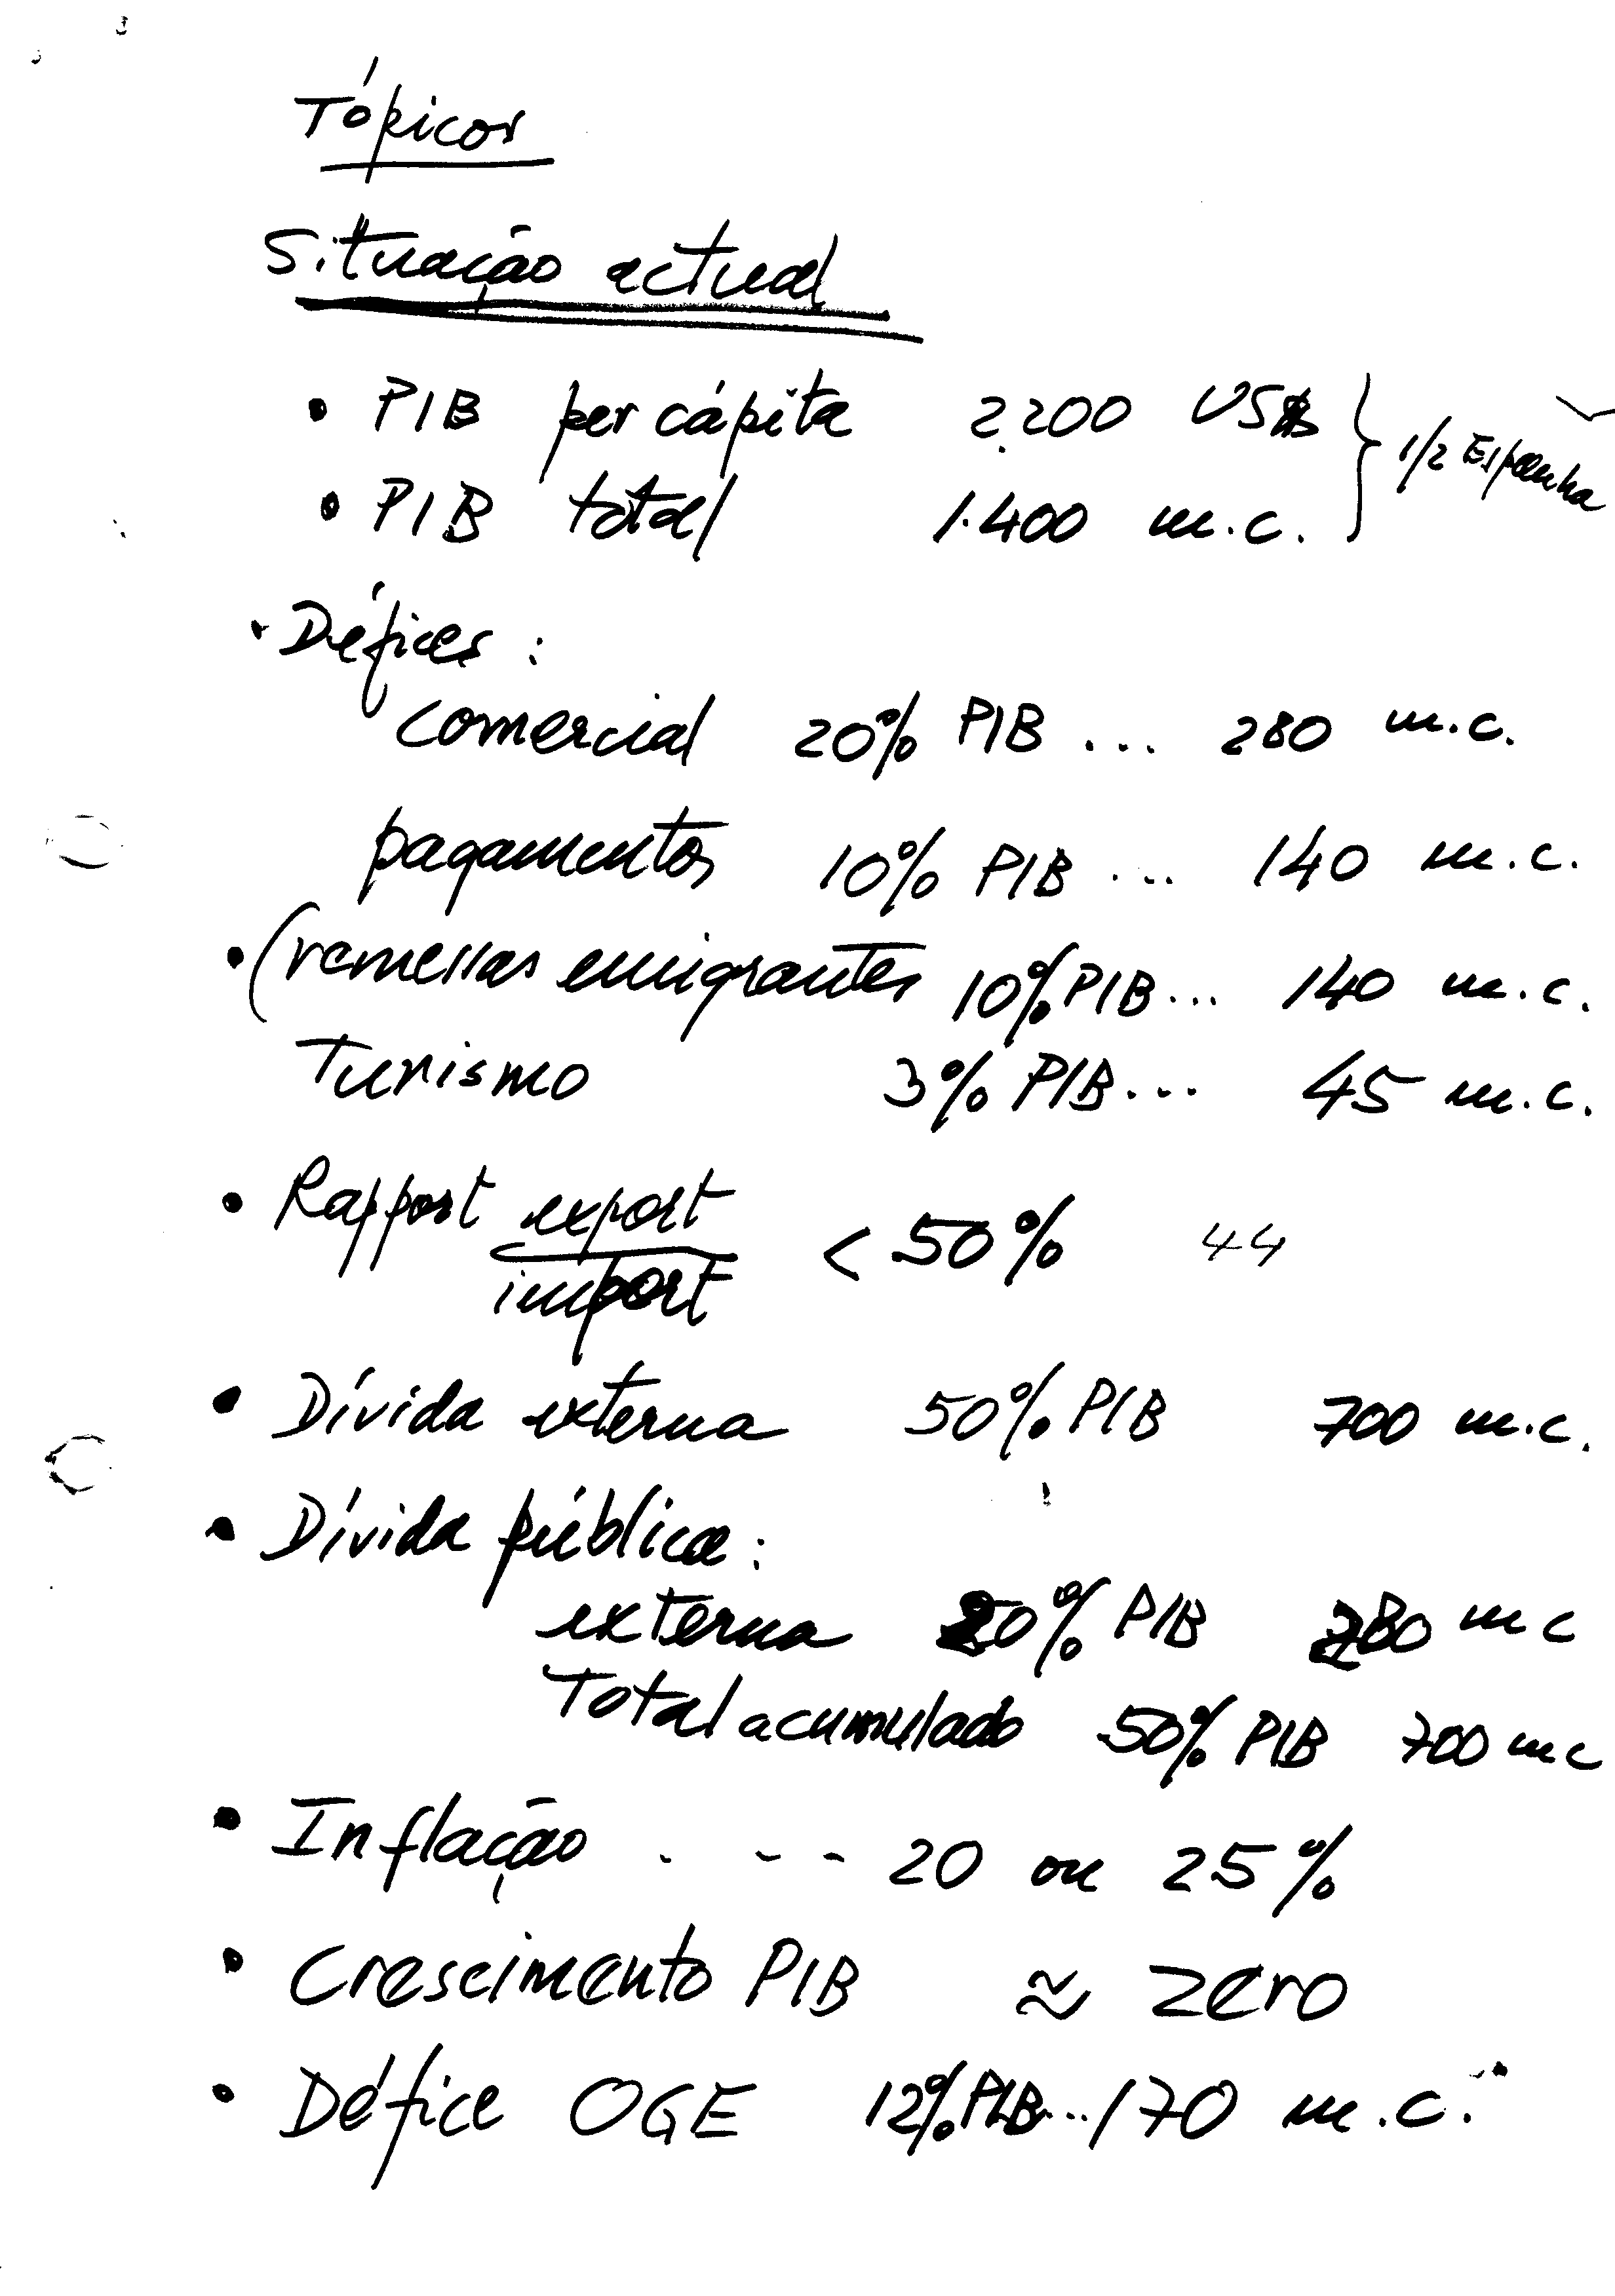 Tópicos
Situação actual
• PIB per cápita 2.200 US$ } 1/2 Espanha
• PIB total 1.400 m.c.
• Défices :
comercial 20% PIB ... 280 m.c.
pagamentos 10% PIB ... 140 m.c.
• (remessas emigrantes 10% PIB ... 140 m.c.
Turismo 3% PIB ... 45 m.c.
• Rapport export
import < 50% 44
• Dívida externa 50% PIB 700 m.c.
• Dívida pública :
externa 20% PIB 280 mc
Total acumulado 50% PIB 700 mc
• Inflação . - - - 20 ou 25%
• Crescimento PIB ≈ zero
• Défice OGE 12% PIB ... 170 m.c.